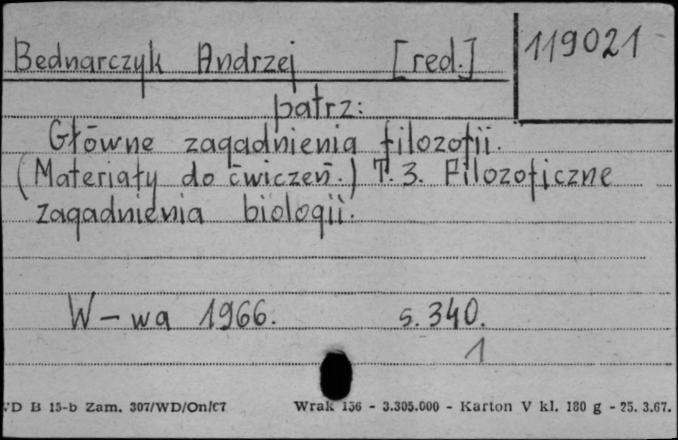 119021
Bednarczyk Andrzej [red.]
patrz:
Główne zagadnienia filozofii.
(Materiały do ćwiczeń.) T. 3. Filozoficzne
zagadnienia biologii.
W-wa 1966. s. 340.
1
D B 15-b Zam. 307/WD/On/67 Wrak 156 - 3.305.000 - Karton V kl. 180 g - 25. 3.67.